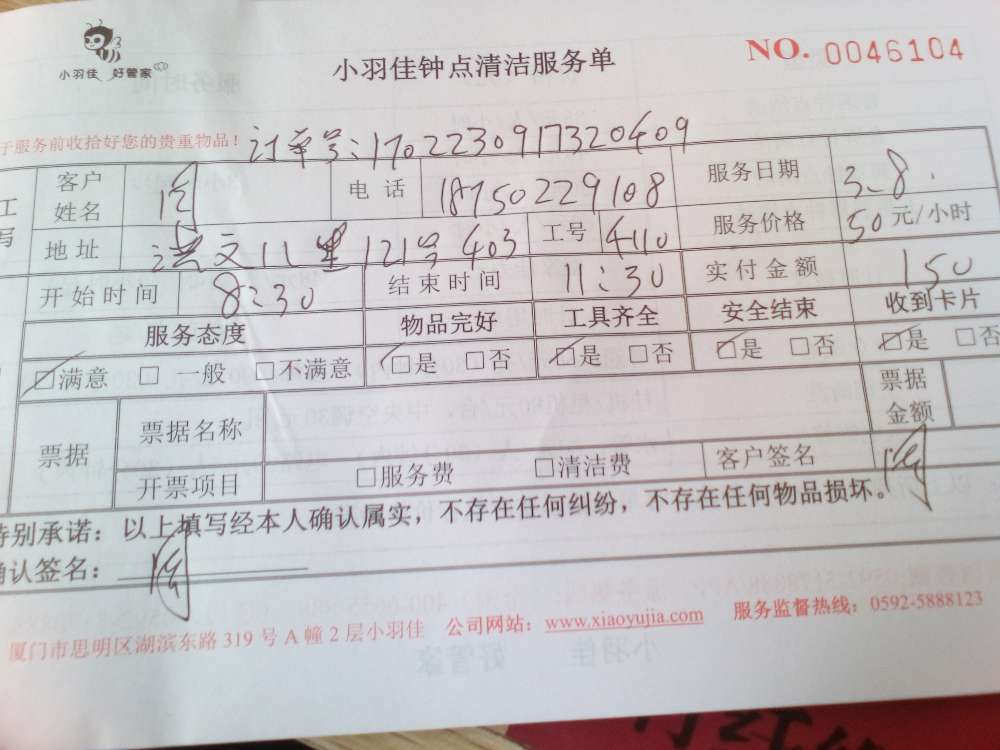 小羽佳 好管家
小羽佳钟点清洁服务单
NO. 0046104
于服务前收拾好您的贵重物品！
订单号:1702230917320409
工 写 客户姓名 电话 18750229108 服务日期 3.8.
地址 洪文11里121号403 工号 4110 服务价格 50元/小时
开始时间 8:30 结束时间 11:30 实付金额 150
服务态度 物品完好 工具齐全 安全结束 收到卡片
□满意 □一般 □不满意 □是 □否 □是 □否 □是 □否 □是 □否
票据 票据名称 票据金额
开票项目 □服务费 □清洁费 客户签名
特别承诺：以上填写经本人确认属实，不存在任何纠纷，不存在任何物品损坏。
确认签名：
厦门市思明区湖滨东路319号A幢2层小羽佳 公司网站：www.xiaoyujia.com 服务监督热线：0592-5888123